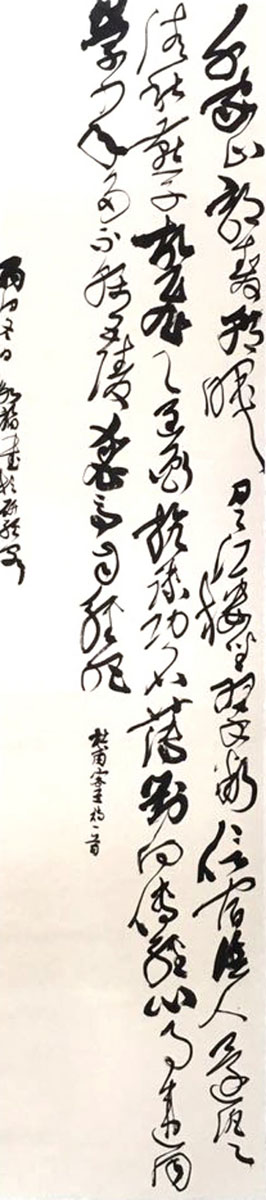 千家山郭静朝暉日々江樓坐翠微信宿漁人還泛々
清秋燕子故飛々匡衡抗疏功名薄劉向傳經心事違同
學少年多不賤五陵衣馬自輕肥 杜甫一首